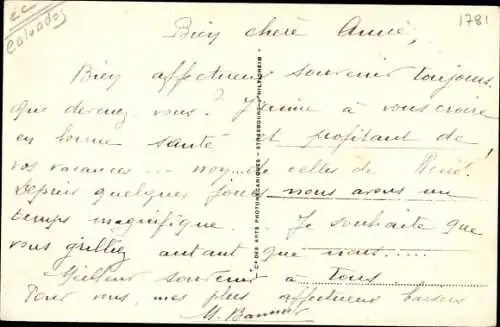 Calvados
1781
Bien chère Annie,
Bien affectueux souvenir toujours.
que devenez-vous ? J'aime à vous croire
en bonne santé et profitant de
vos vacances ... de celles de René !
Depuis quelques jours nous avons un
temps magnifique ... Je souhaite que
vous grilliez autant que nous ....
Meilleur souvenir à tous
Pour vous, mes plus affectueux baisers
M.
Cie DES ARTS PHOTOMÉCANIQUES - STRASBOURG-SCHILTIGHEIM -